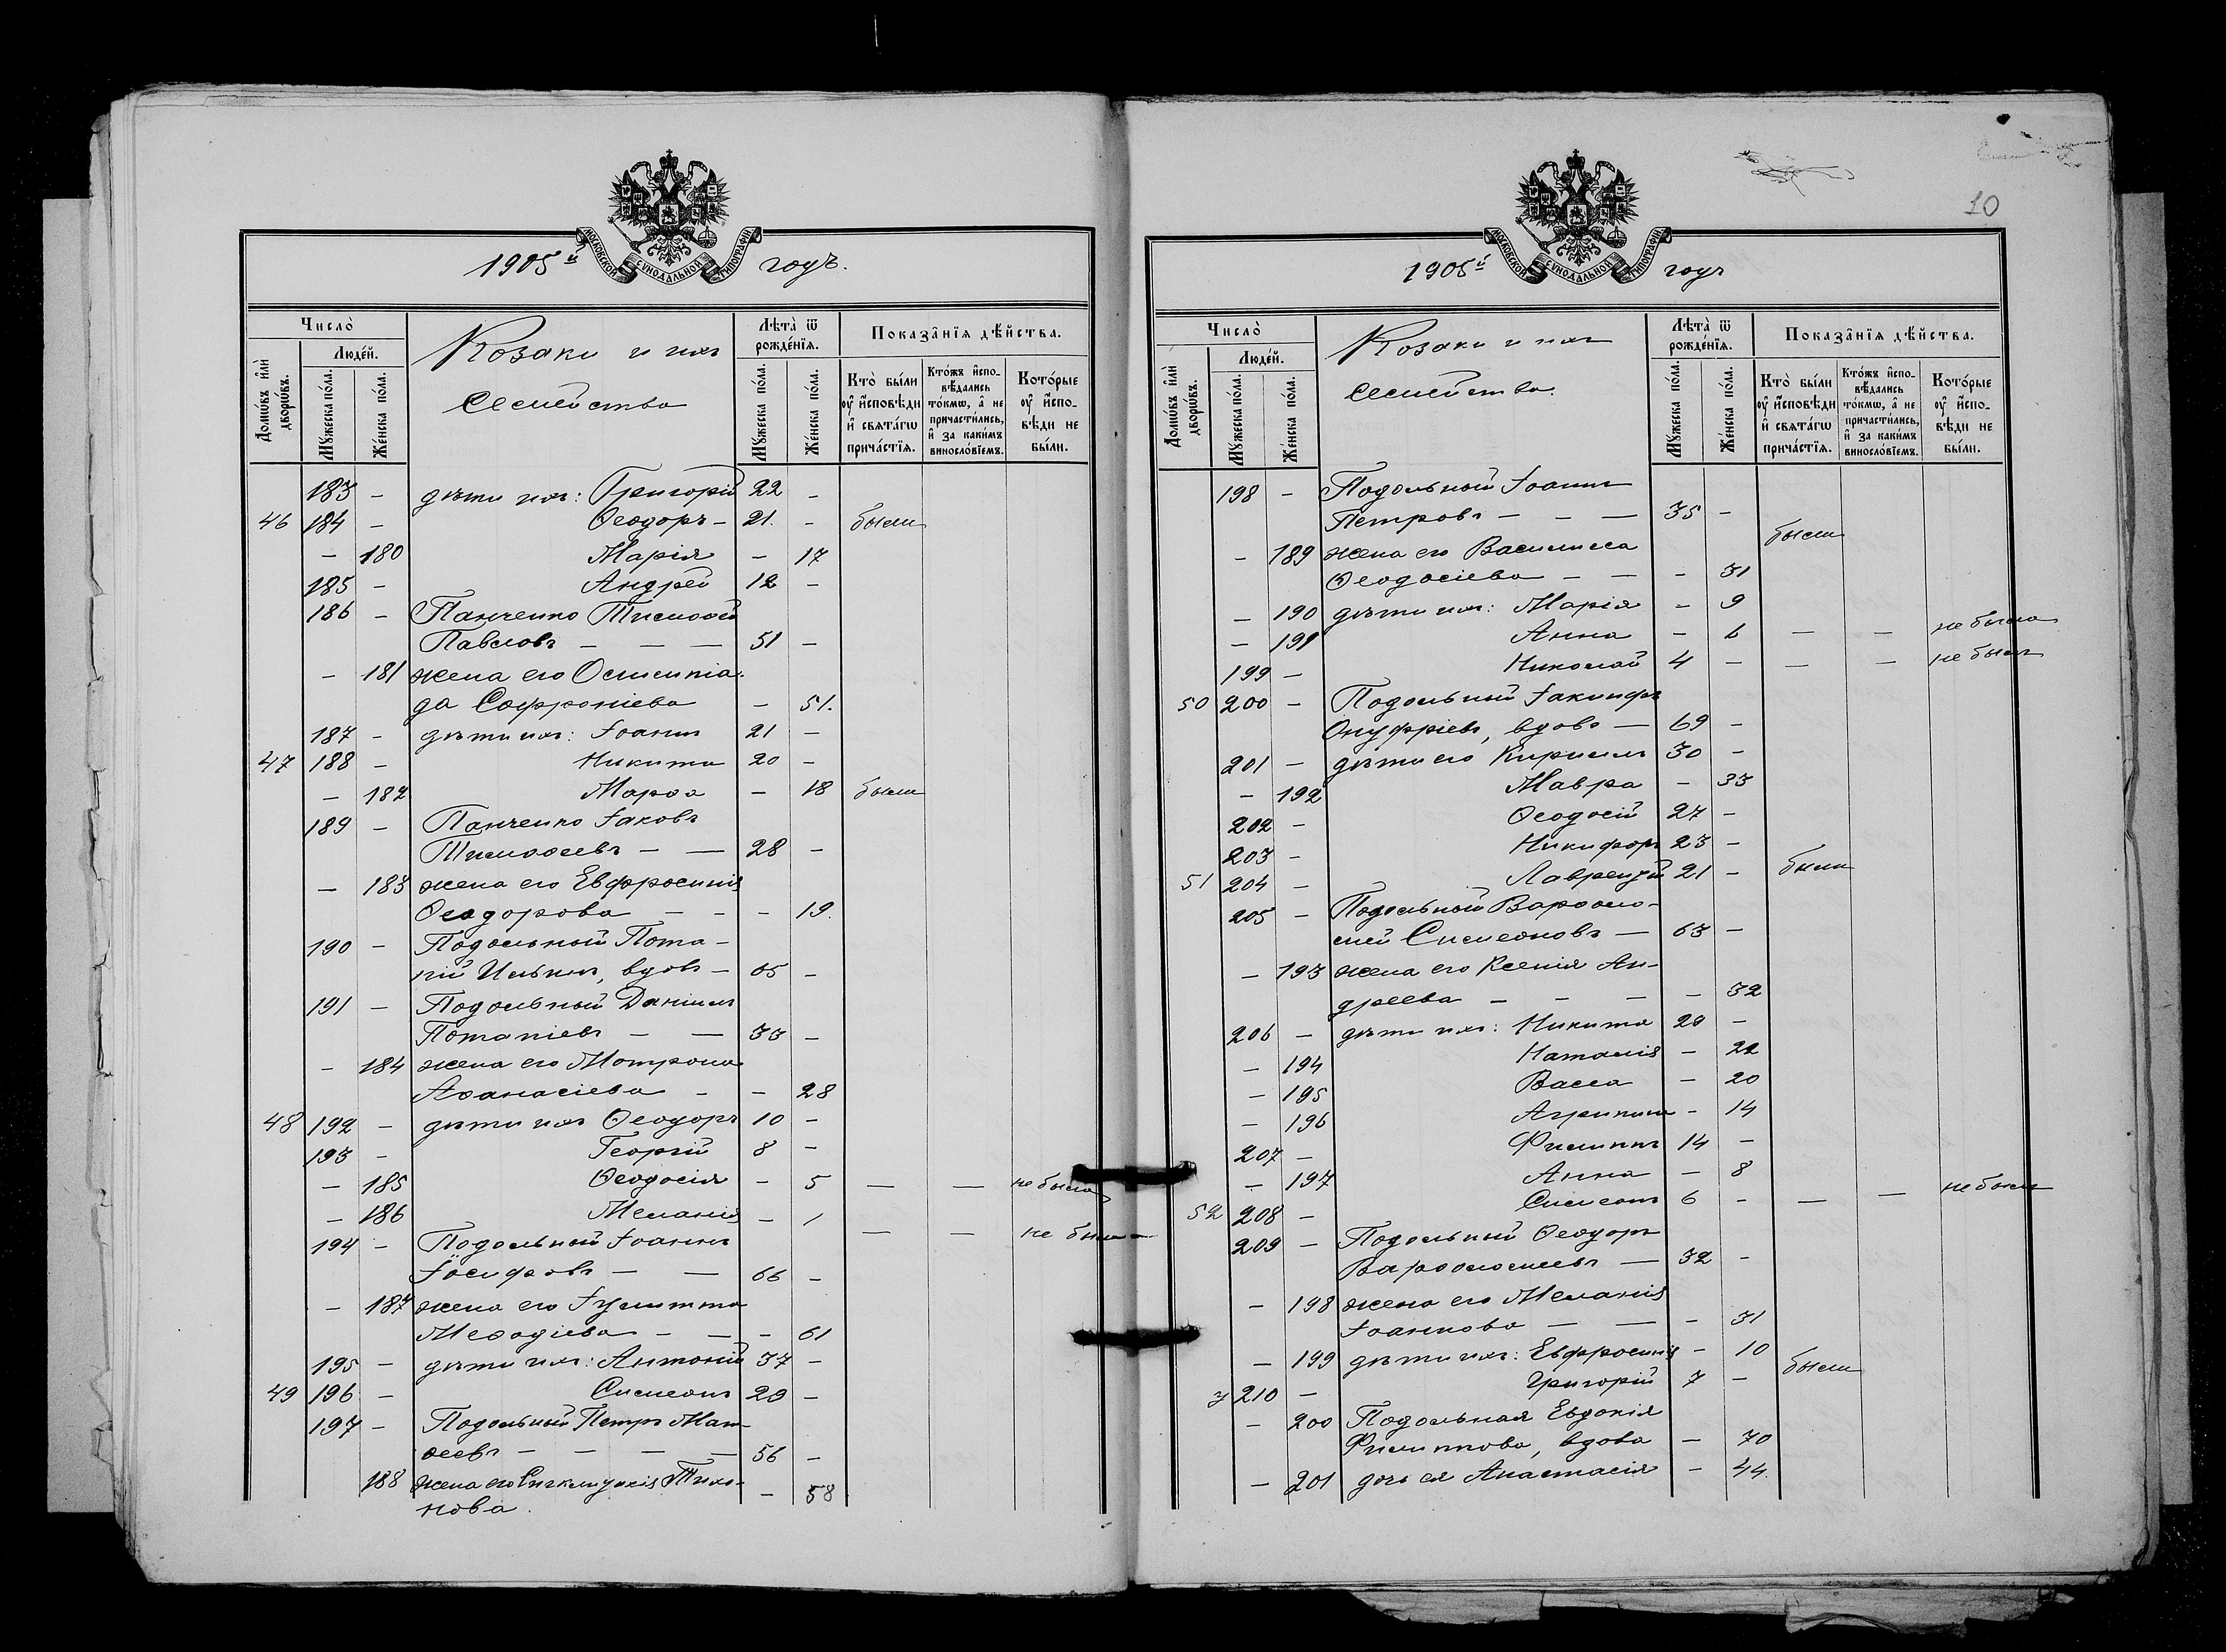 10
1905й годъ.
МОСКОВСКОЙ СѴНОДАЛЬНОЙ ТИПОГРАФІИ
Число̀
Люде́й.
Домѡ́въ и҆лѝ дворѡ́въ.
Мꙋ́жеска по́ла.
Же́нска по́ла.
Козаки и ихъ
семейства
Лѣта̀ ѿ рожде́нїѧ.
Мꙋ́жеска по́ла.
Же́нска по́ла.
Показа̑нїѧ дѣ́йства.
Кто̀ бы́ли оу҆ и҆сповѣ́ди и҆ свѧта́гѡ прича́стїѧ.
Кто́жъ и҆сповѣ́дались то́кмѡ, а҆ не причасти́лись, и҆ за каки́мъ винослові́емъ.
Кото́рые оу҆ и҆сповѣ́ди не бы́ли.
183 - дѣти ихъ: Григорій 22 -
46 184 - Ѳеодоръ - 21. - были
- 180 Марія - 17
185 - Андрей 12 -
186 - Панченко Тимоѳей
Павловъ - - - 51 -
- 181 жена его Олимпіа-
да Софроніева - 51.
187 - дѣти ихъ: Іоаннъ 21 -
47 188 - Никита 20 -
- 182 Марѳа - 18 были
189 - Панченко Іаковъ
Тимоѳеевъ - - 28 -
- 183 жена его Евфросинія
Ѳеодорова - - - 19.
190 - Подольный Пота-
пій Ильинъ, вдовъ - 65 -
191 - Подольный Даніилъ
Потапіевъ - - 33 -
- 184 жена его Матрона
Аѳанасіева - - 28
48 192 - дѣти ихъ Ѳеодоръ 10 -
193 - Георгій 8 -
- 185 Ѳеодосія - 5 - - не была
- 186 Меланія - 1 - - не была
194 - Подольный Іоаннъ
Іосифовъ - - 66 -
- 187 жена его Іулитта
Меѳодіева - - - 61
195 - дѣти ихъ: Антоній 37 -
49 196 - Симеонъ 29 -
197 - Подольный Петръ Мат-
ѳеевъ - - - - 56 -
188 жена его Тихо-
нова. - 58
1905й годъ
МОСКОВСКОЙ СѴНОДАЛЬНОЙ ТИПОГРАФІИ
Число̀
Люде́й.
Домѡ́въ и҆лѝ дворѡ́въ.
Мꙋ́жеска по́ла.
Же́нска по́ла.
Козаки и ихъ
семейства.
Лѣта̀ ѿ рожде́нїѧ.
Мꙋ́жеска по́ла.
Же́нска по́ла.
Показа̑нїѧ дѣ́йства.
Кто̀ бы́ли оу҆ и҆сповѣ́ди и҆ свѧта́гѡ прича́стїѧ.
Кто́жъ и҆сповѣ́дались то́кмѡ, а҆ не причасти́лись, и҆ за каки́мъ винослові́емъ.
Кото́рые оу҆ и҆сповѣ́ди не бы́ли.
198 - Подольный Іоаннъ
Петровъ - - - 35 -
были
- 189 жена его Василисса
Ѳеодосіева - - - 31
- 190 дѣти ихъ: Марія - 9
- 191 Анна - 6 - - не была
199 - Николай 4 - - - не былъ
50 200 - Подольный Іакинфъ
Онуфріевъ, вдовъ - 69 -
201 - дѣти его Кириллъ 30 -
- 192 Мавра - 33
202 - Ѳеодосій 27 -
203 - Никифоръ 23 -
51 204 - Лаврентій 21 - были
205 - Подольный Варѳоло-
мей Симеоновъ - 63 -
- 193 жена его Ксенія Ан-
дреева - - - - 32
206 - дѣти ихъ: Никита 29 -
- 194 Наталія - 22
- 195 Васса - 20
- 196 Агрипина - 14
207 - Филиппъ 14 -
- 197 Анна - 8
52 208 - Симеонъ 6 - - - не былъ
209 - Подольный Ѳеодоръ
Варѳоломеевъ - 32 -
- 198 жена его Меланія
Іоаннова - - - 31
- 199 дѣти ихъ: Евфросинія - 10
были
210 - Григорій 7 -
- 200 Подольная Евдокія
Филиппова, вдова - 70
- 201 дочь ея Анастасія - 44.